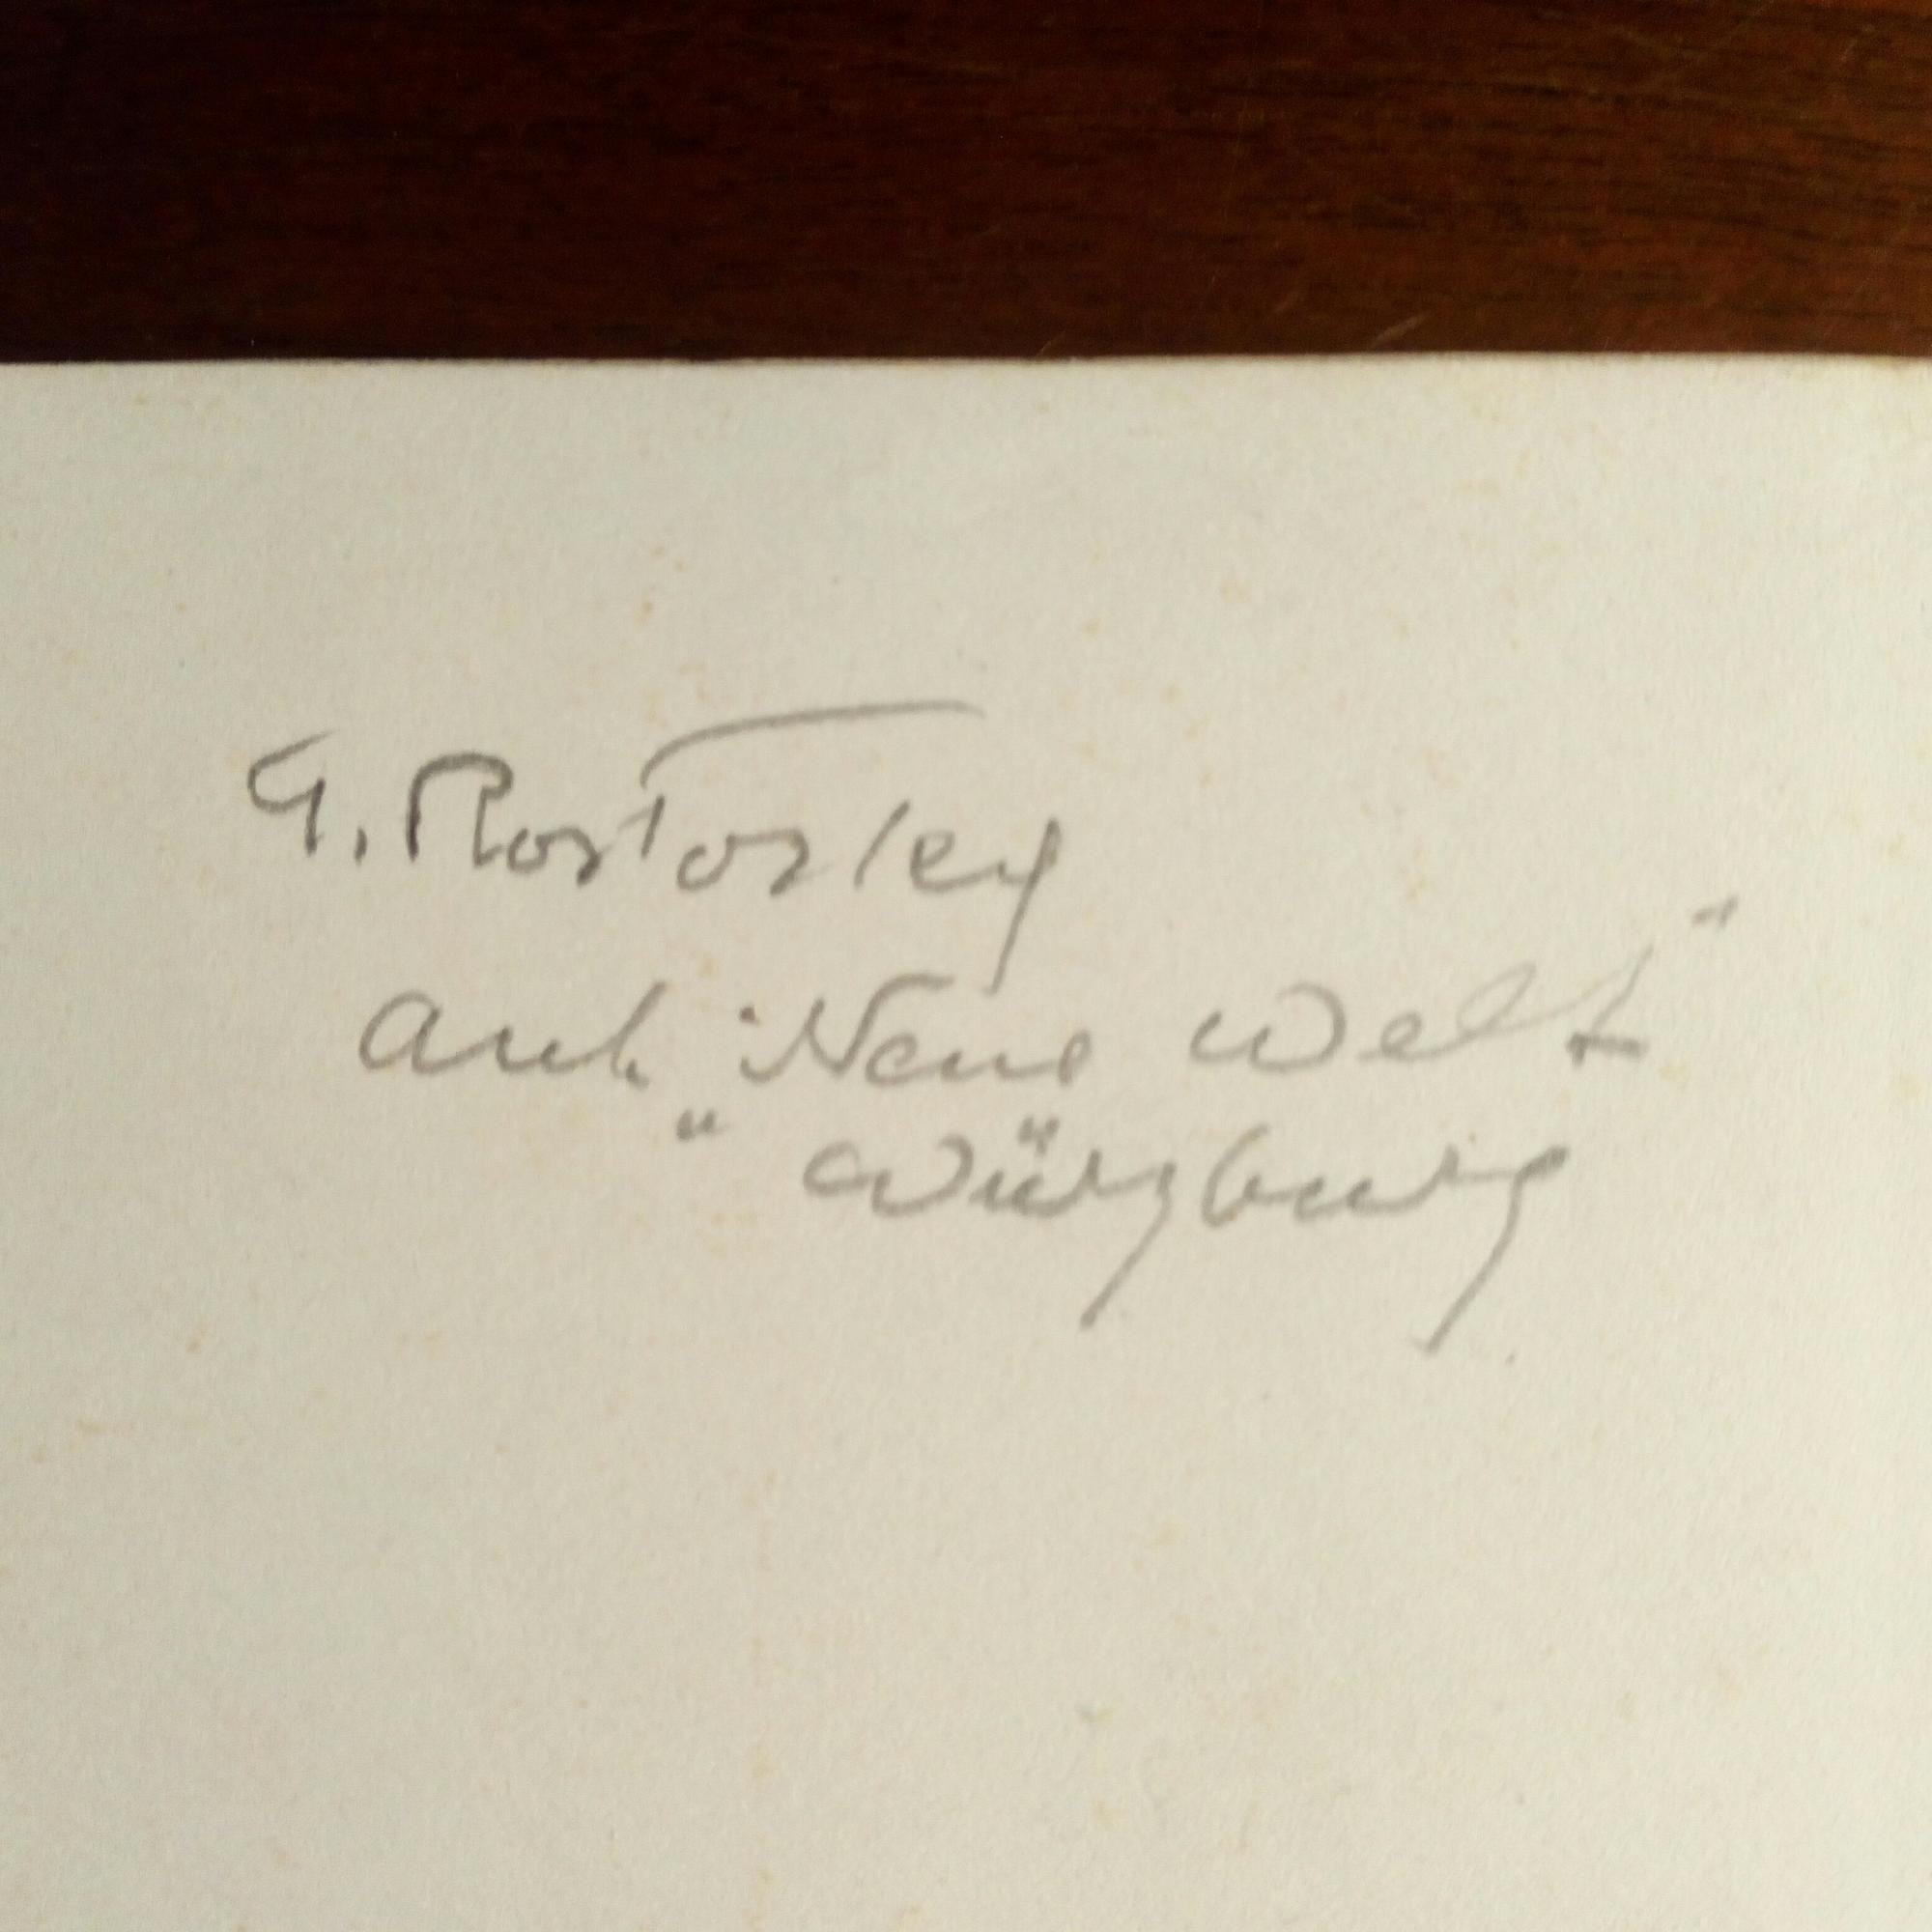 G. Rostosky
Ant. "Neue Welt"
" Würzburg